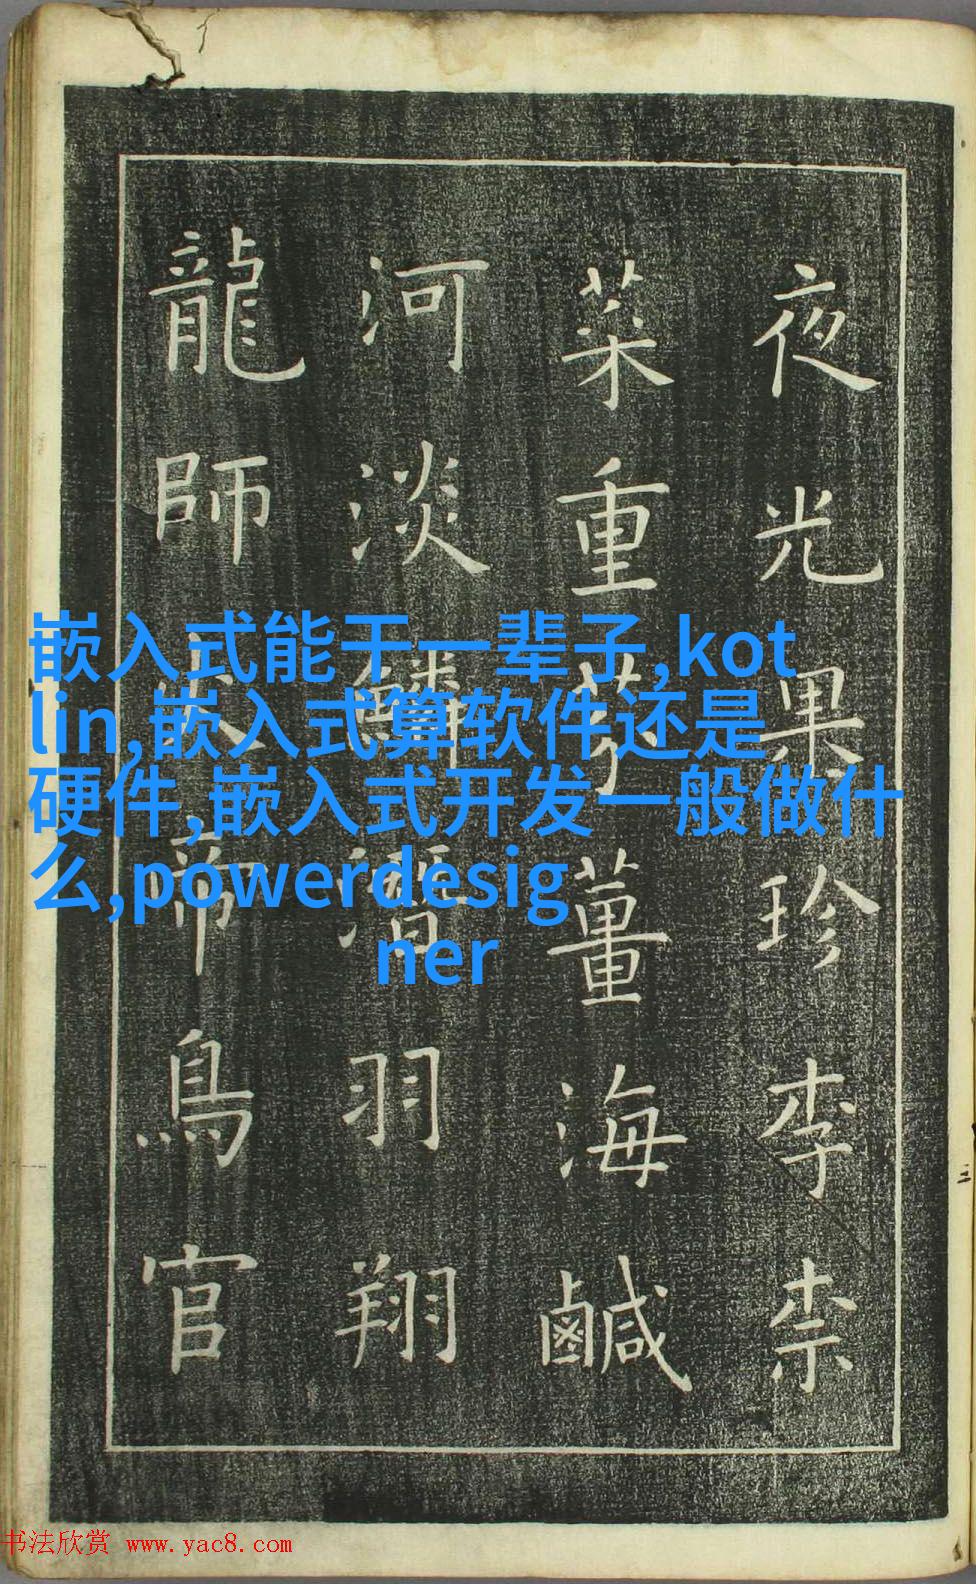 夜光果珍李柰
菜重芥薑海鹹
河淡鱗潛羽翔
龍師火帝鳥官
嵌入式能干一辈子,kot
lin,嵌入式算软件还是
硬件,嵌入式开发一般做什
么,powerdesig
ner
书法欣赏 www.yac8.com